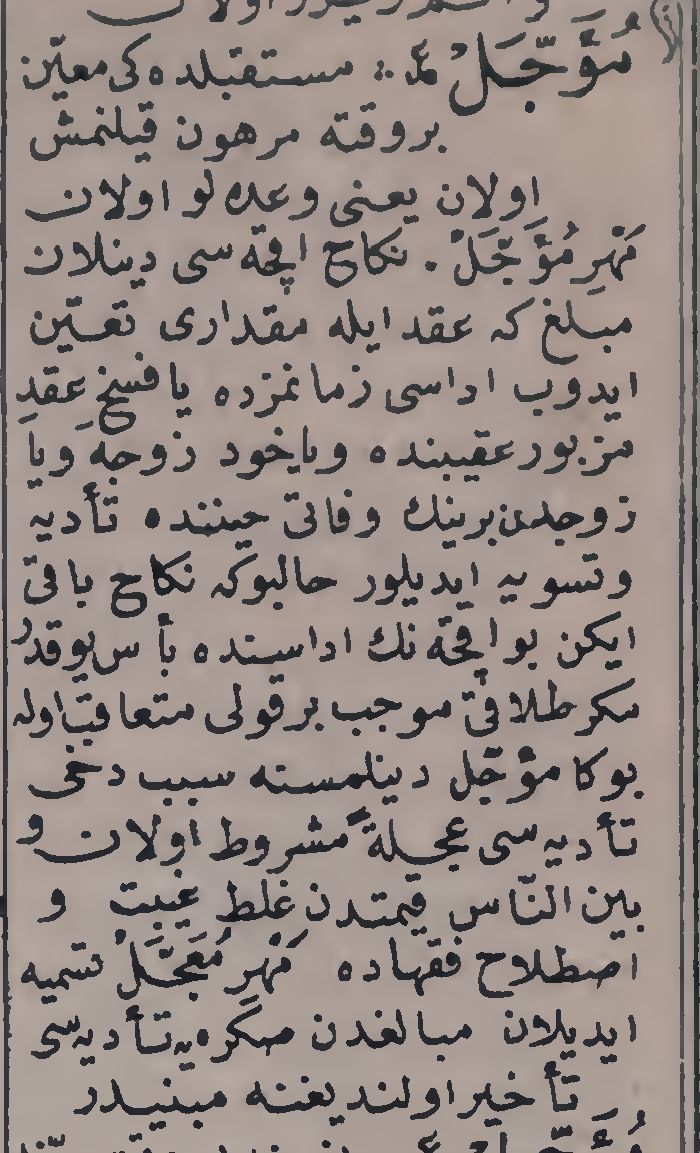 مُؤَجَّلْ ع. مستقبلده كی معیّن
بر وقته مرهون قیلنمش
اولان یعنی وعده لو اولان
مَهْرِ مُؤَجَّلْ . نكاح اقچه سی دینلان
مبلغ كه عقد ایله مقداری تعیّن
ایدوب اداسی زمانمزده یا فسخ عقدِ
مزبور عقیبنده ویاخود زوجه ویا
زوجدن برینك وفاتی حیننده تأدیه
وتسویه ایدیلور حالبوكه نكاح باقی
ایكن بو اقچه نك اداسنده بأس یوقدر
مكر طلاقی موجب بر قولی متعاقب اوله
بوكا مؤجّل دینلمسنه سبب دخی
تأدیه سی عجلةً مشروط اولان و
بین النّاس قیمتدن غلط غیبت و
اصطلاح فقهاده مَهْرِ مُعَجَّلْ تسمیه
ایدیلان مبالغدن صكره یه تأدیه سی
تأخیر اولندیغنه مبنیدر